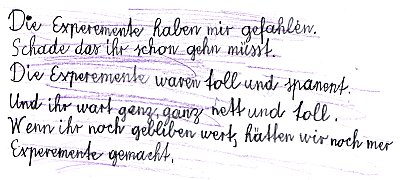 Die Experemente haben mir gefahlen.
Schade das ihr schon gehn müsst.
Die Experemente waren toll und spanent.
Und ihr wart ganz, ganz nett und toll.
Wenn ihr noch gebliben wert, hätten wir noch mer
Experemente gemacht.